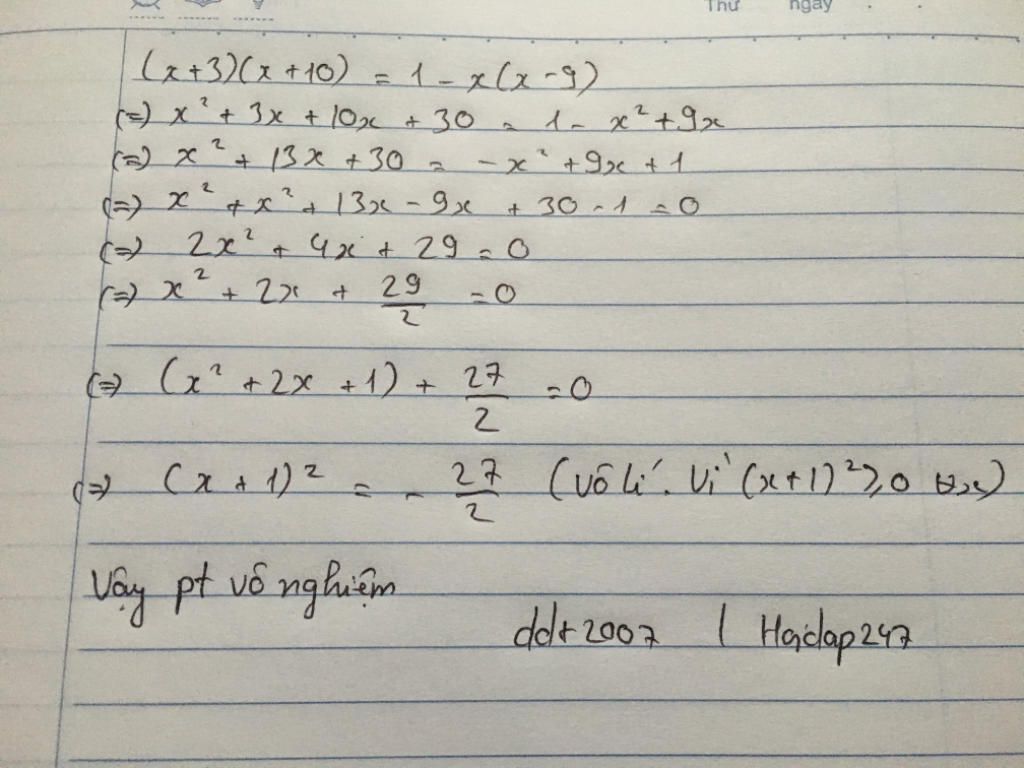 Thứ ngày . .
(x+3)(x+10) = 1 - x(x-9)
(=) x² + 3x + 10x + 30 = 1 - x² + 9x
(=) x² + 13x + 30 = -x² + 9x + 1
(=) x² + x² + 13x - 9x + 30 - 1 = 0
(=) 2x² + 4x + 29 = 0
(=) x² + 2x + 29/2 = 0
(=) (x² + 2x + 1) + 27/2 = 0
(=) (x + 1)² = - 27/2 (vô lí. Vì (x+1)² ≥ 0 ∀x)
Vậy pt vô nghiệm
ddt2007 | Hoidap247